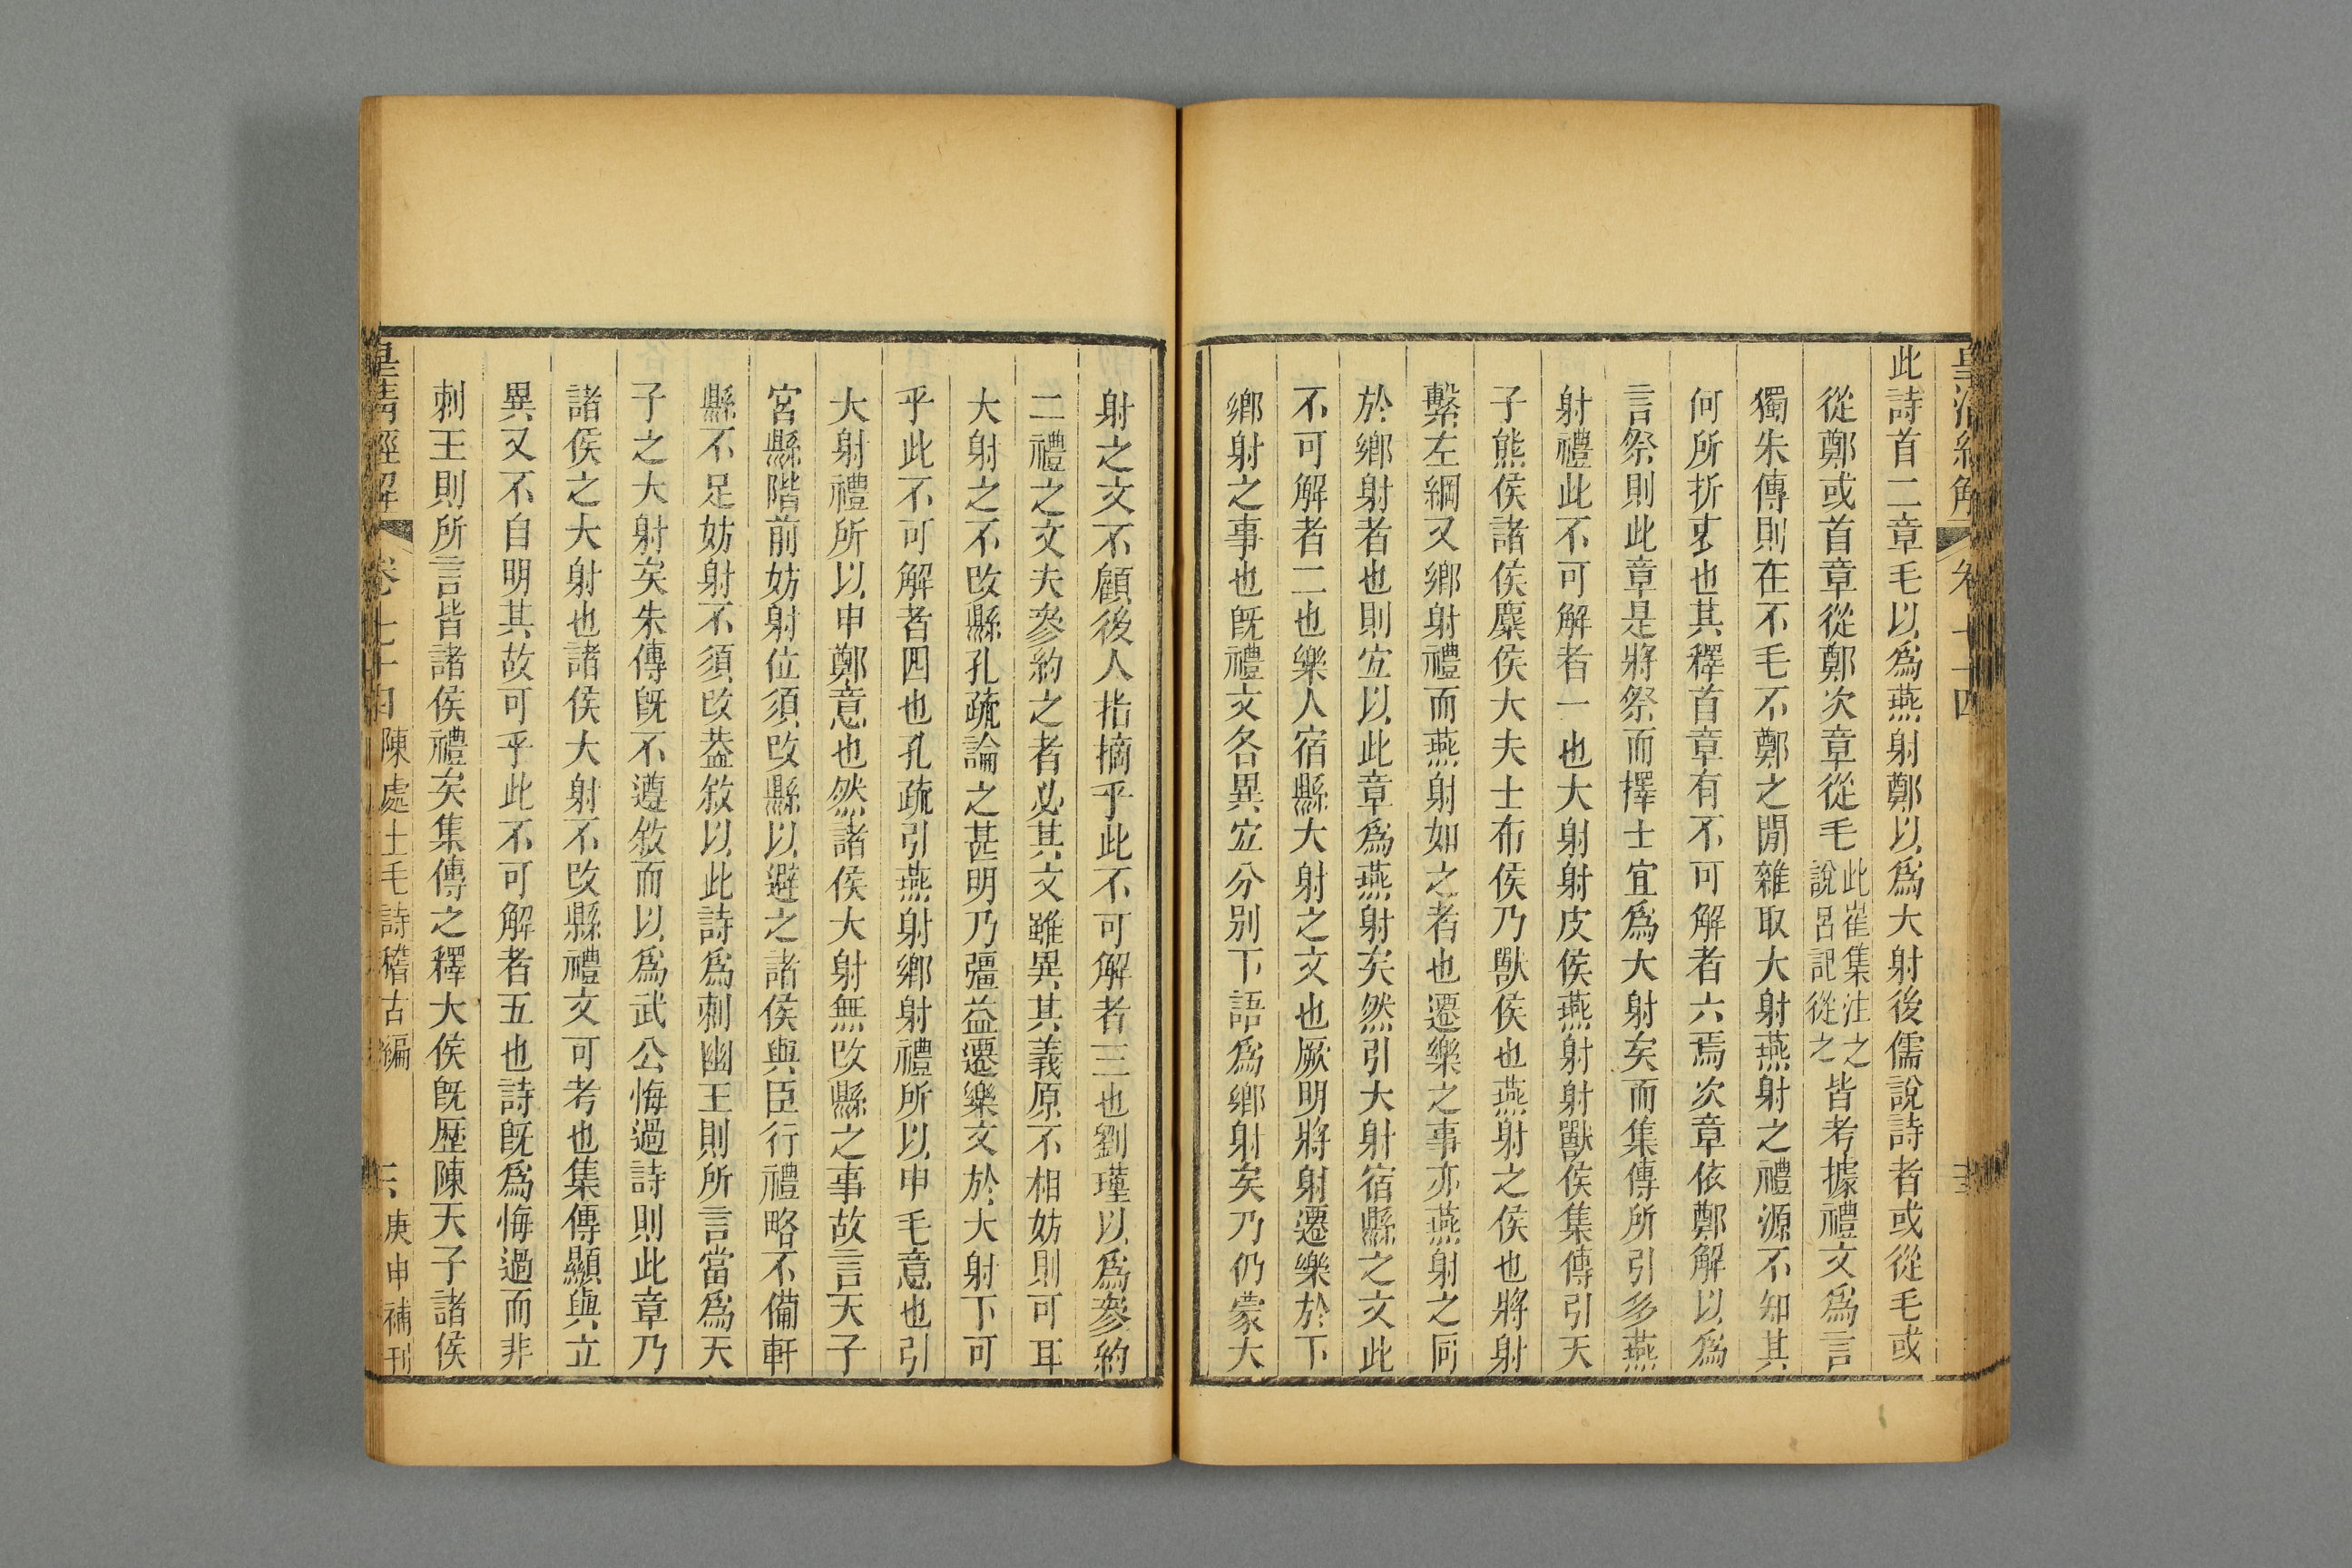 此詩首二章毛以爲燕射鄭以爲大射後儒說詩者或從毛或
從鄭或首章從鄭次章從毛此崔集注之說呂記從之皆考據禮文爲言
獨朱傳則在不毛不鄭之閒雜取大射燕射之禮源不知其
何所折衷也其釋首章有不可解者六焉次章依鄭解以爲
言祭則此章是將祭而擇士宜爲大射矣而集傳所引多燕
射禮此不可解者一也大射射皮侯燕射射獸侯集傳引天
子熊侯諸侯麋侯大夫士布侯乃獸侯也燕射之侯也將射
繫左綱又鄉射禮而燕射如之者也遷樂之事亦燕射之同
於鄉射者也則宐以此章爲燕射矣然引大射宿縣之文此
不可解者二也樂人宿縣大射之文也厥明將射遷樂於下
鄉射之事也旣禮文各異宐分別下語爲鄉射矣乃仍蒙大
射之文不顧後人指摘乎此不可解者三也劉瑾以爲參約
二禮之文夫參約之者必其文雖異其義原不相妨則可耳
大射之不改縣孔疏論之甚明乃彊益遷樂文於大射下可
乎此不可解者四也孔疏引燕射鄉射禮所以申毛意也引
大射禮所以申鄭意也然諸侯大射無改縣之事故言天子
宮縣階前妨射位須改縣以避之諸侯與臣行禮略不備軒
縣不足妨射不須改葢敘以此詩爲刺幽王則所言當爲天
子之大射矣朱傳旣不遵敘而以爲武公悔過詩則此章乃
諸侯之大射也諸侯大射不改縣禮文可考也集傳顯與立
異又不自明其故可乎此不可解者五也詩旣爲悔過而非
刺王則所言皆諸侯禮矣集傳之釋大侯旣歷陳天子諸侯
皇清經解 卷七十四 陳處士毛詩稽古編 庚申補刊